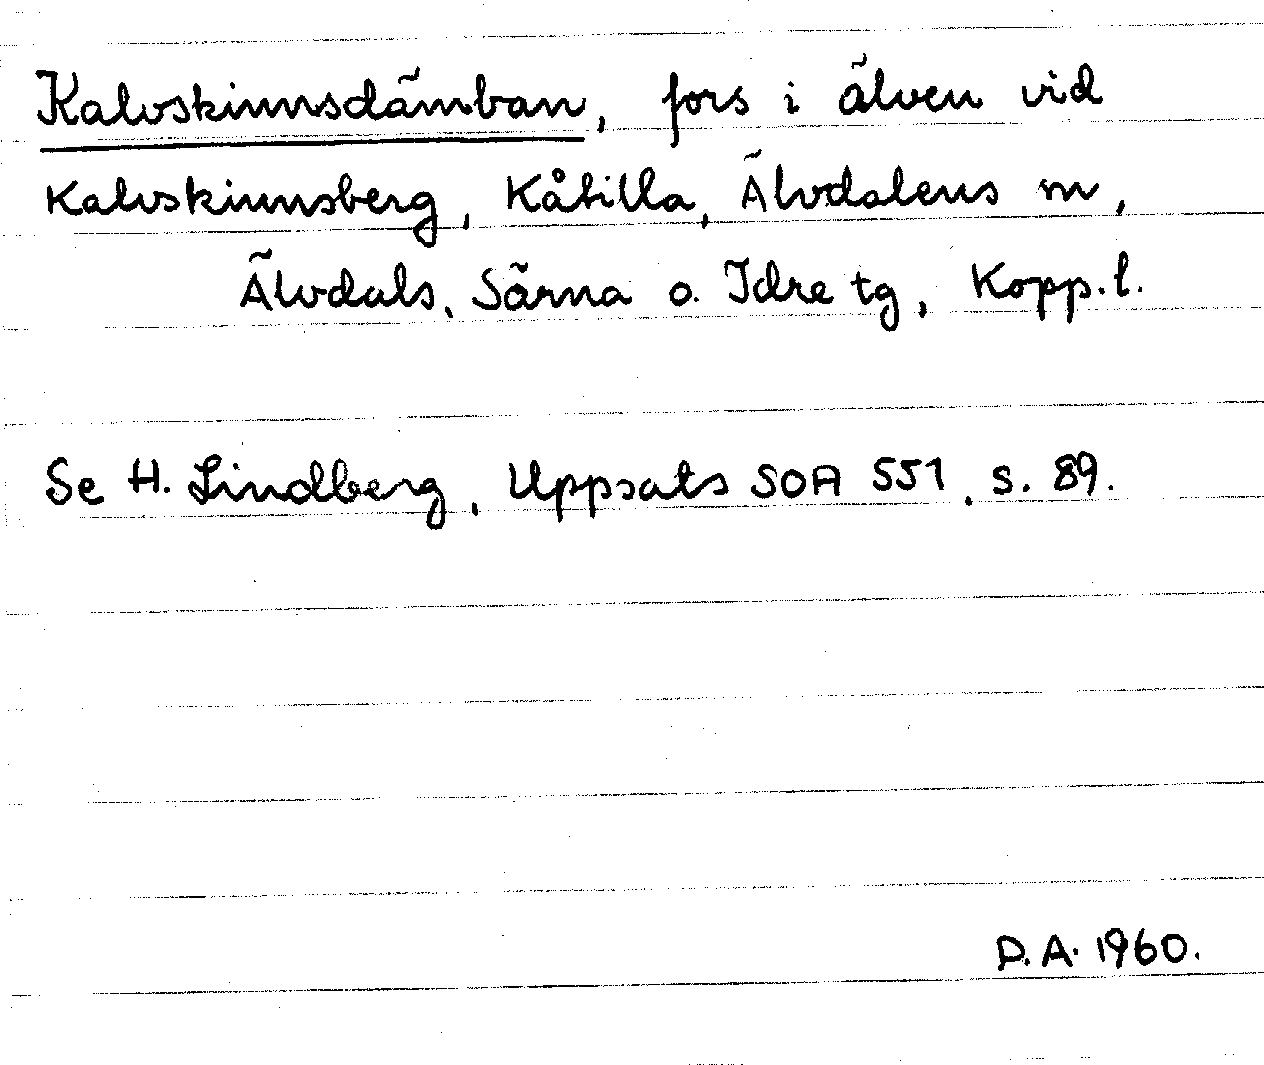 Kalvskinnsdämban, fors i älven vid
Kalvskinnsberg, Kåtilla, Älvdalens m,
Älvdals, Särna o. Idre tg, Kopp. l.
Se H. Lindberg, Uppsats SOA 551, s. 89.
D.A. 1960.